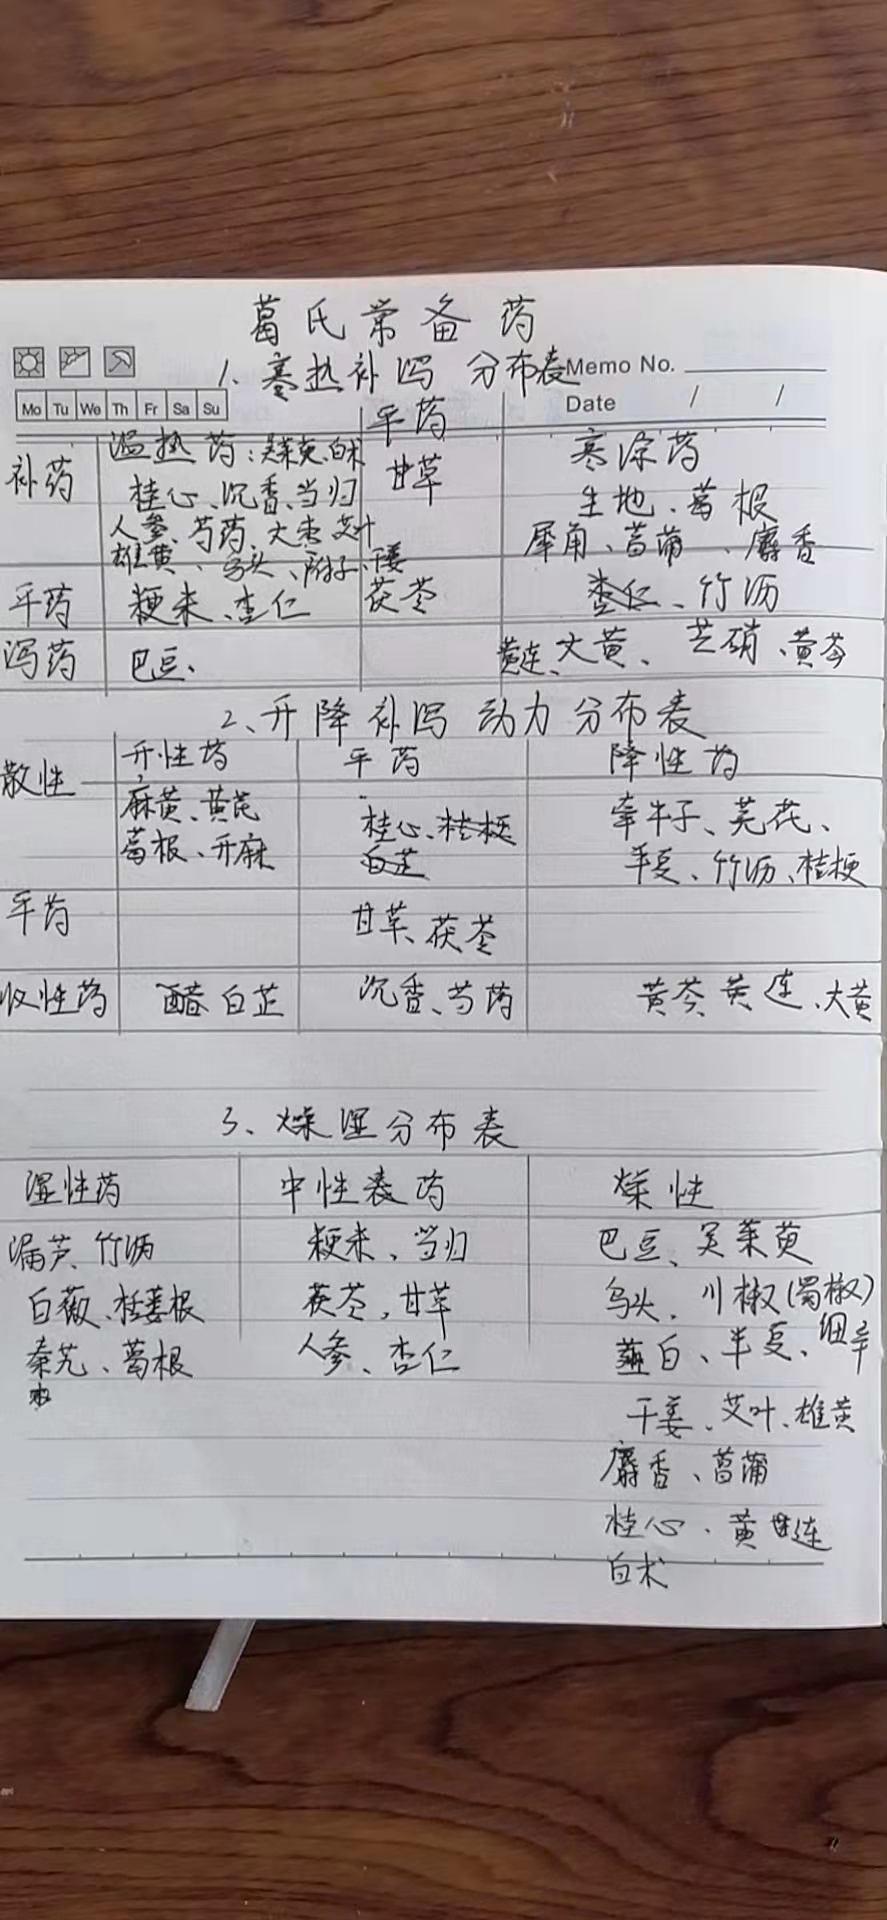 葛氏常备药
1、寒热补泻 分布表
Memo No.
Mo Tu We Th Fr Sa Su
Date / /
平药
补药 温热药:吴茱萸、白术 甘草 寒凉药
桂心、沉香、当归 生地、葛根
人参、芍药、大枣、艾叶 犀角、菖蒲、麝香
雄黄、乌头、附子、干姜
平药 粳米、杏仁 茯苓 竹沥
泻药 巴豆、 黄连、大黄、芒硝、黄芩
2、升降补泻 动力分布表
散性 升性药 平药 降性药
麻黄、黄芪 桂心、 牵牛子、芫花、
葛根、升麻 半夏、竹沥、桔梗
平药 甘草、茯苓
收性药 醋 白芷 沉香、芍药 黄芩、黄连、大黄
3、燥湿分布表
湿性药 中性表药 燥性
漏芦、竹沥 粳米、当归 巴豆、吴茱萸
白薇、栝蒌根 茯苓,甘草 乌头、川椒(蜀椒)
秦艽、葛根 人参、杏仁 薤白、半夏、细辛
干姜、艾叶、雄黄
麝香、菖蒲
桂心、黄连
白术